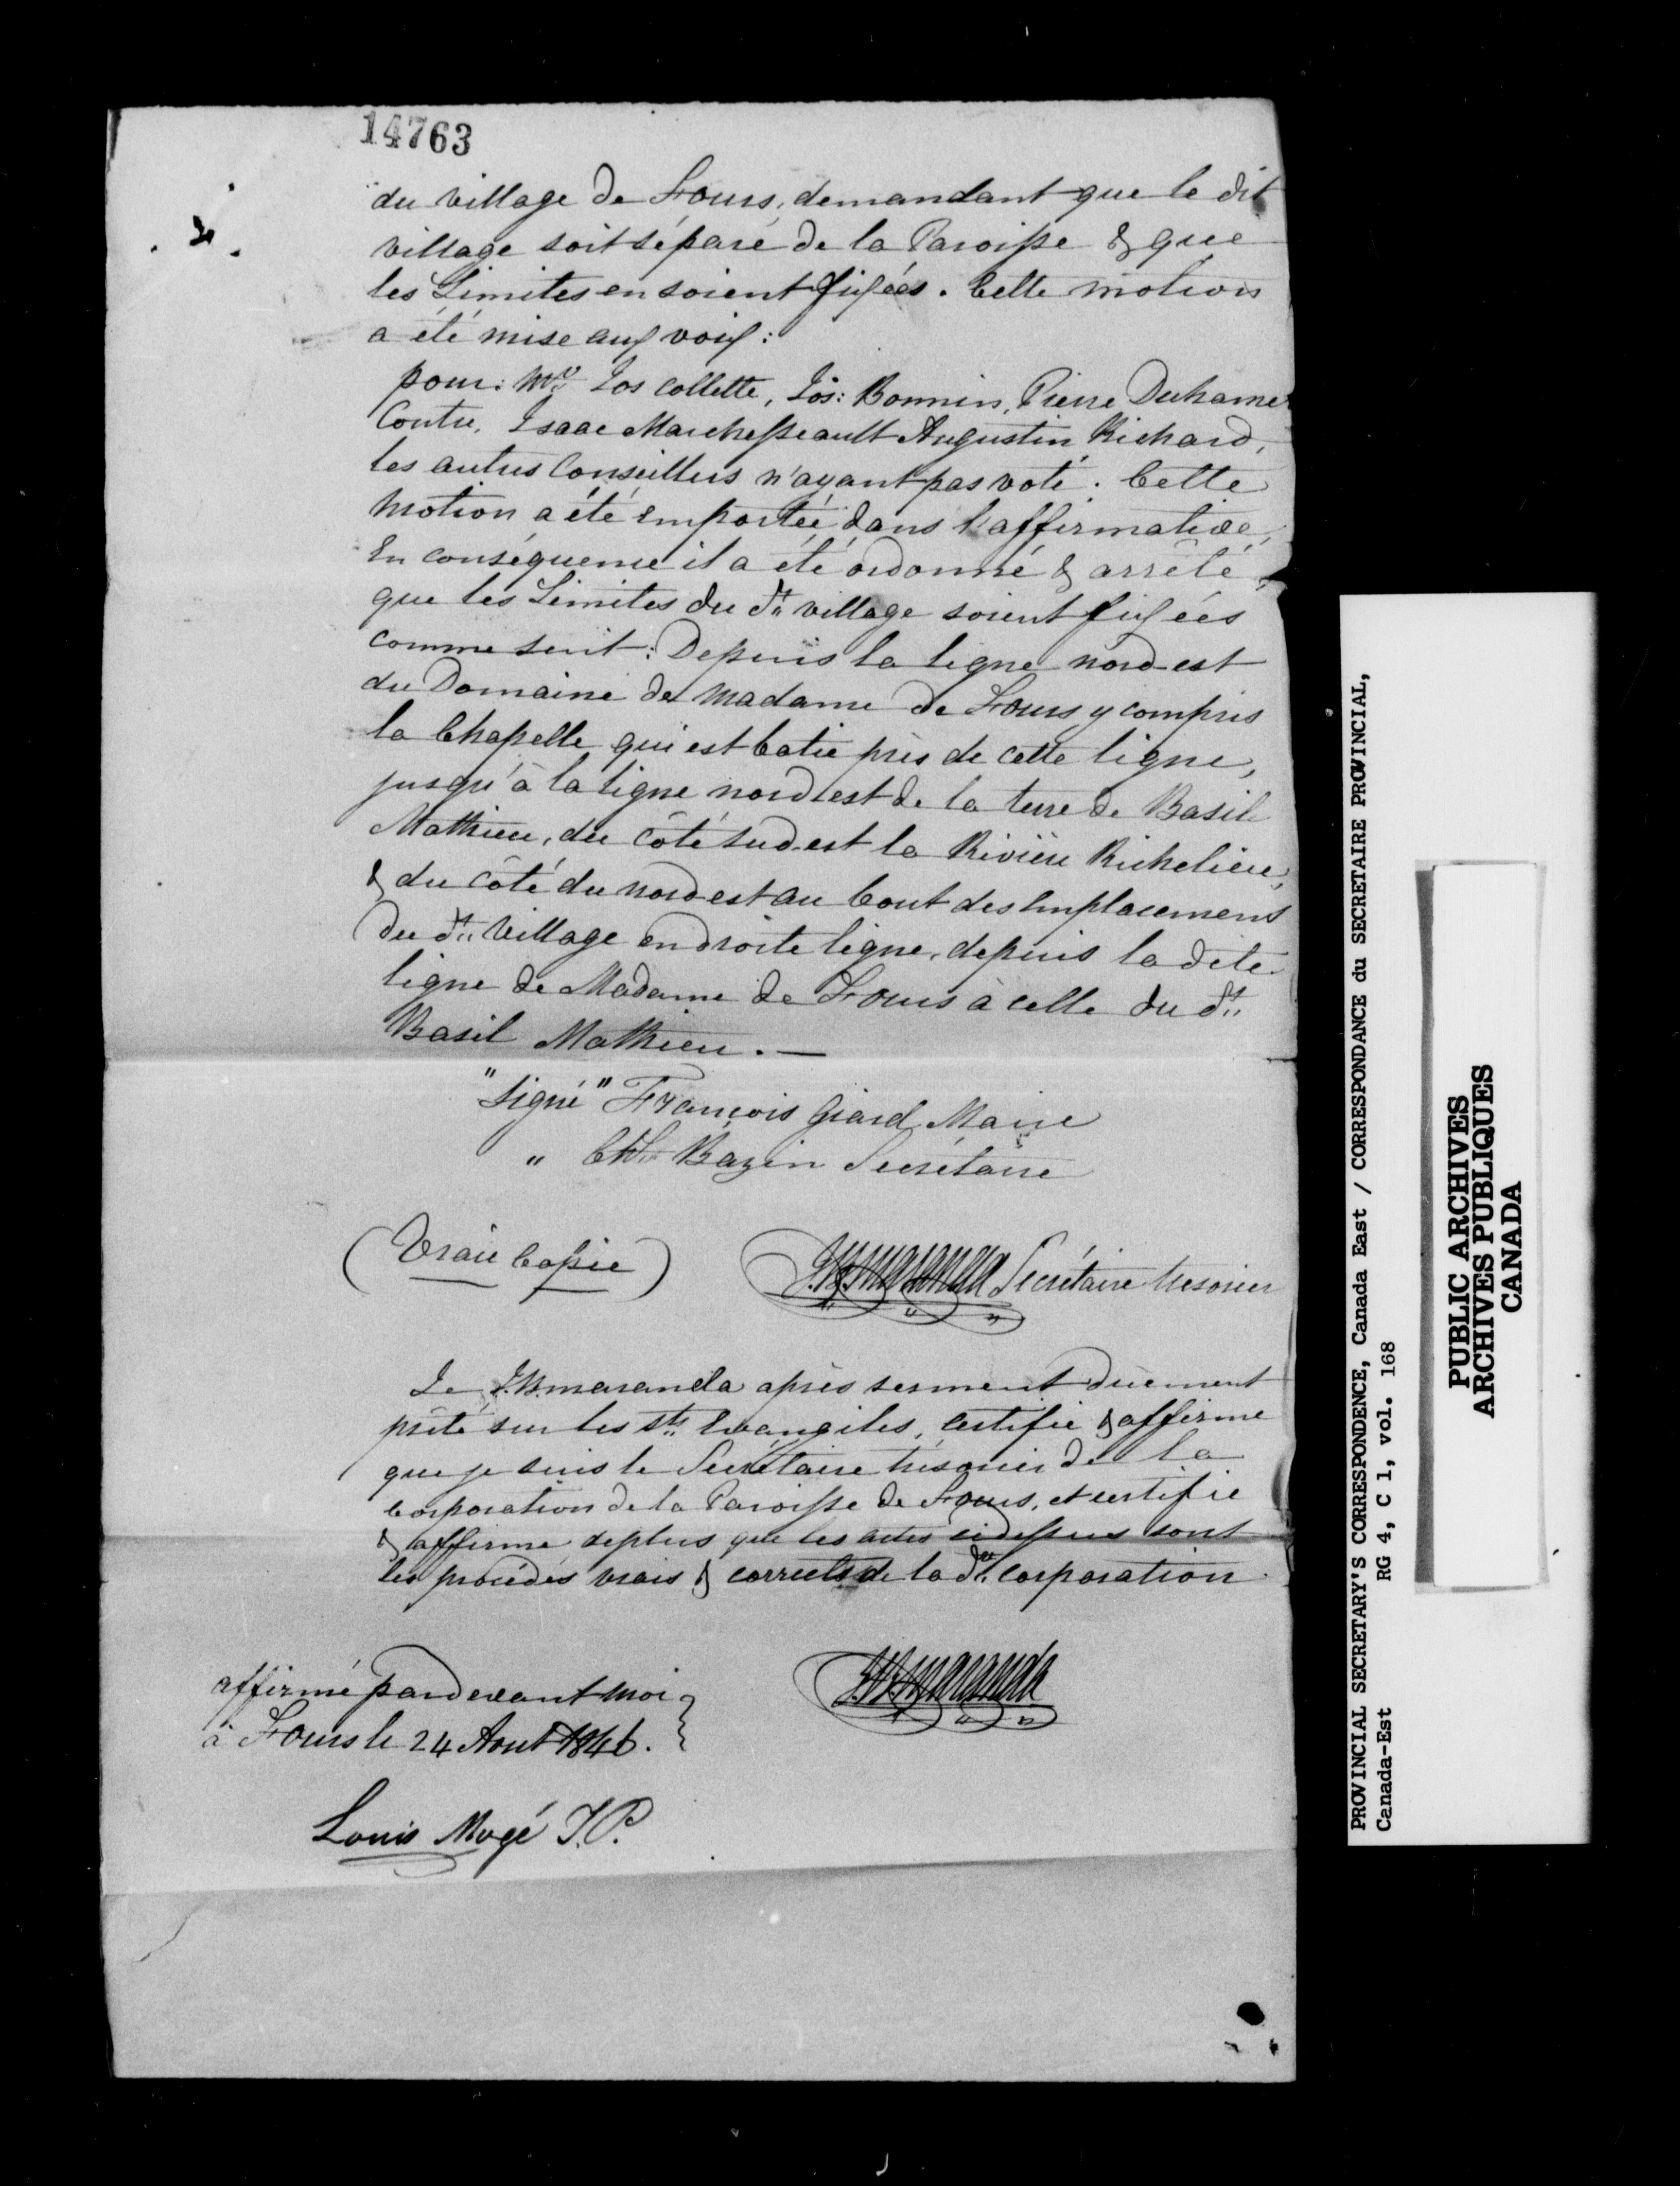 14763
du village de St Ours, demandant que le dit
village soit séparé de la Paroisse & que
les Limites en soient fixées. Cette motion
a été mise aux voix :
pour : Mrs Jos Collette, Jos: Bonnin, Pierre Duhamel
Contre, Isaac Marchesseault Augustin Richard,
les autres Conseillers n'ayant pas voté. Cette
Motion a été emportée dans l'affirmative,
En conséquence il a été ordonné & arrêté,
que les Limites du dt village soient fixées
comme suit : Depuis la ligne nord-est
du Domaine de Madame de St Ours y compris
la Chapelle qui est batie près de cette ligne,
jusqu'à la ligne nord est de la terre de Basil
Mathieu, du côté sud-est la Rivière Richelieu,
& du côté du nord est au bout des Emplacemens
du dt Village en droite ligne, depuis la dite
ligne de Madame de St Ours à celle du dt
Basil Mathieu. —
"Signé" François Giard Maire
" Bazin Secrétaire
(Vraie Copie) Secrétaire Trésorier
Je J.B. maranda après serment duement
prété sur les Sts Evangiles, certifie & affirme
que je suis le Secrétaire trésorier de la
corporation de la Paroisse de St Ours, et certifie
& affirme deplus que les actes cidessus sont
les procédés vrais & corrects de la dte corporation.
affirmé pardevant moi
à St Ours le 24 Aout 1846.
Louis Mogé J.P.
PROVINCIAL SECRETARY'S CORRESPONDENCE, Canada East / CORRESPONDANCE du SECRETAIRE PROVINCIAL,
Canada-Est RG 4, C 1, vol. 168
PUBLIC ARCHIVES
ARCHIVES PUBLIQUES
CANADA